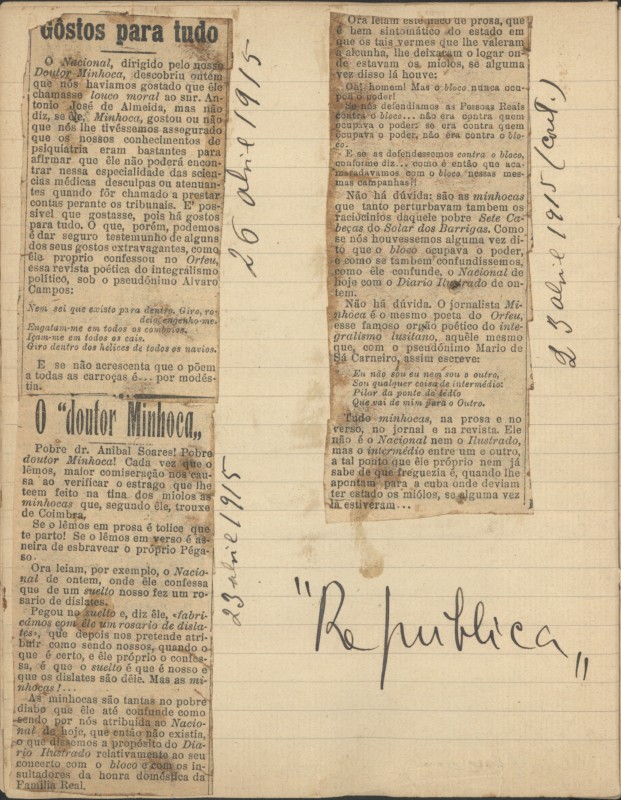 Góstos para tudo
O Nacional, dirigido pelo nosso
Doutor Minhoca, descobriu ontem
que nós haviamos gostado que êle
chamasse louco moral ao snr. An-
tonio José de Almeida, mas não
diz, se êle, Minhoca, gostou ou não
que nós lhe tivéssemos assegurado
que os nossos conhecimentos de
psiquiatria eram bastantes para
afirmar que êle não poderá encon-
trar nessa especialidade das scien-
cias médicas desculpas ou atenuan-
tes quando fôr chamado a prestar
contas perante os tribunais. E' pos-
sivel que gostasse, pois há gostos
para tudo. O que, porém, podemos
é dar seguro testemunho de alguns
dos seus gostos extravagantes, como
êle proprio confessou no Orfeu,
essa revista poética do integralismo
político, sob o pseudónimo Alvaro
Campos:
Nem sei que existo para dentro. Giro, ro-
deio, engenho-me.
Engatam-me em todos os comboios.
Içam-me em todos os cais.
Giro dentro dos helices de todos os navios.
E se não acrescenta que o põem
a todas as carroças é... por modés-
tia.
26 abril 1915
O "doutor Minhoca„
Pobre dr. Aníbal Soares! Pobre
doutor Minhoca! Cada vez que o
lêmos, maior comiseração nos cau-
sa ao verificar o estrago que lhe
teem feito na tina dos miolos as
minhocas que, segundo êle, trouxe
de Coimbra.
Se o lêmos em prosa é tolice que
te parto! Se o lêmos em verso é as-
neira de esbravear o próprio Péga-
so.
Ora leiam, por exemplo, o Nacio-
nal de ontem, onde êle confessa
que de um suelto nosso fez um ro-
sario de dislates.
Pegou no suelto e, diz êle, «fabri-
cámos com êle um rosario de disla-
tes», que depois nos pretende atri-
buir como sendo nossos, quando o
que é certo, e êle próprio o confes-
sa, é que o suelto é que é nosso e
que os dislates são dêle. Mas as mi-
nhocas!...
As minhocas são tantas no pobre
diabo que êle até confunde como
sendo por nós atribuida ao Nacio-
nal de hoje, que então não existia,
o que dissemos a propósito do Dia-
rio Ilustrado relativamente ao seu
concerto com o bloco e com os in-
sultadores da honra doméstica da
Família Real.
23 abril 1915
Ora leiam este naco de prosa, que
é bem sintomático do estado em
que os tais vermes que lhe valeram
a alcunha, lhe deixaram o logar on-
de estavam os miolos, se alguma
vez disso lá houve:
Oh! homem! Mas o bloco nunca ocu-
pou o poder!
Se nós defendiamos as Pessoas Reais
contra o bloco... não era contra quem
ocupava o poder: se era contra quem
ocupava o poder, não era contra o blo-
co.
E se as defendessemos contra o bloco,
conforme diz... como é então que aca-
maradavamos com o bloco nessas mes-
mas campanhas?!
Não há dúvida: são as minhocas
que tanto perturbavam tambem os
raciocinios daquele pobre Sete Ca-
beças do Solar dos Barrigas. Como
se nós houvessemos alguma vez di-
to que o bloco ocupava o poder,
e como se tambem confundissemos,
como êle confunde, o Nacional de
hoje com o Diario Ilustrado de on-
tem.
Não há dúvida. O jornalista Mi-
nhoca é o mesmo poeta do Orfeu,
esse famoso orgão poético do inte-
gralismo lusitano, aquêle mesmo
que, com o pseudónimo Mario de
Sá Carneiro, assim escreve:
Eu não sou eu nem sou o outro,
Sou qualquer coisa de intermédio:
Pilar da ponte do tédio
Que vai de mim para o Outro.
Tudo minhocas, na prosa e no
verso, no jornal e na revista. Ele
não é o Nacional nem o Ilustrado,
mas o intermédio entre um e outro,
a tal ponto que êle próprio nem já
sabe de que freguezia é, quando lhe
apontam para a cuba onde deviam
ter estado os miólos, se alguma vez
lá estiveram...
23 abril 1915 (cont.)
"Republica„